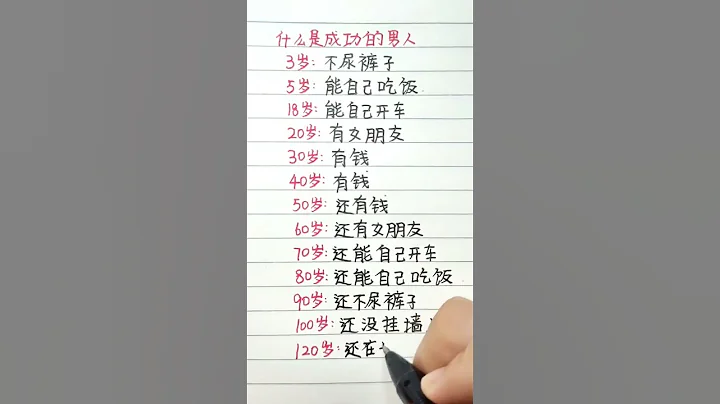 什么是成功的男人
3岁: 不尿裤子
5岁: 能自己吃饭
18岁: 能自己开车
20岁: 有女朋友
30岁: 有钱
40岁: 有钱
50岁: 还有钱
60岁: 还有女朋友
70岁: 还能自己开车
80岁: 还能自己吃饭
90岁: 还不尿裤子
100岁: 还没挂墙
120岁: 还在